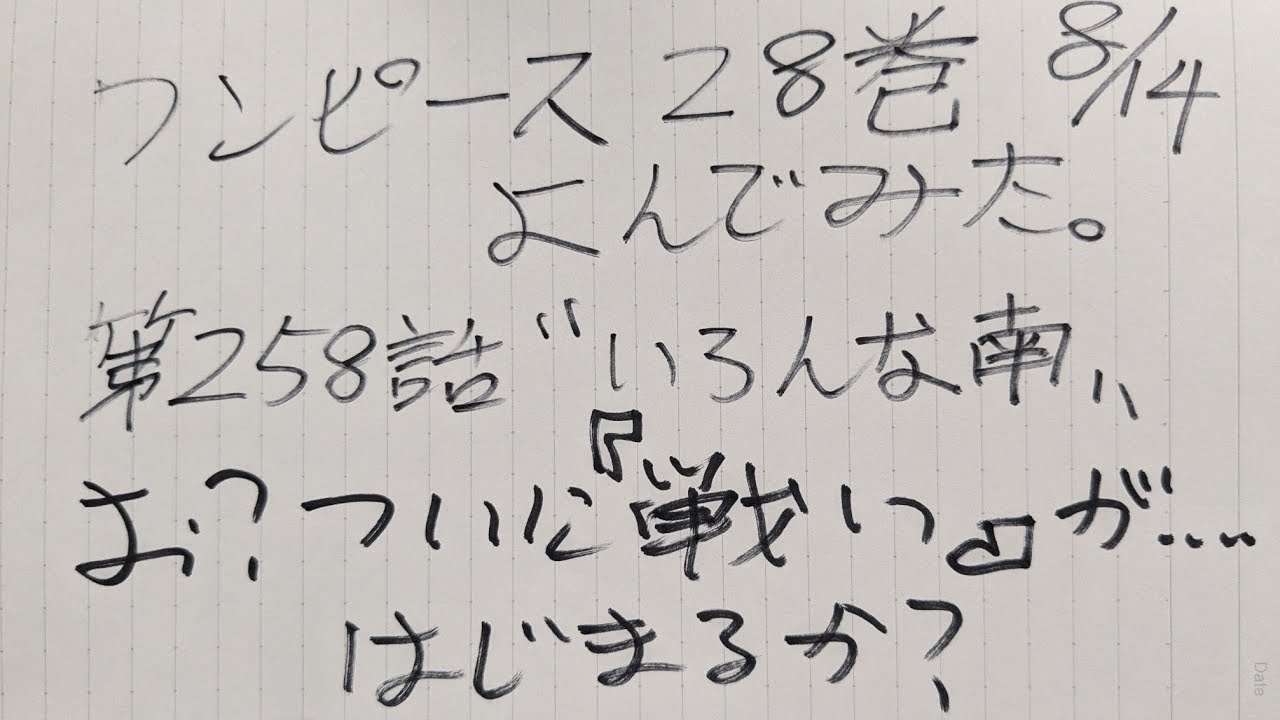 ワンピース 28巻 8/14
よんでみた。
第258話"いろんな南"
お?ついに『戦い』が....
はじまるか?
Date